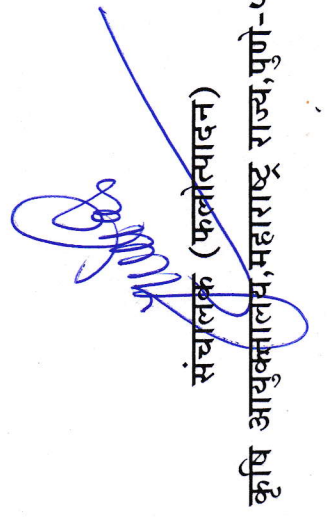 संचालक (फलोत्पादन)
कृषि आयुक्तालय,महाराष्ट्र राज्य,पुणे-